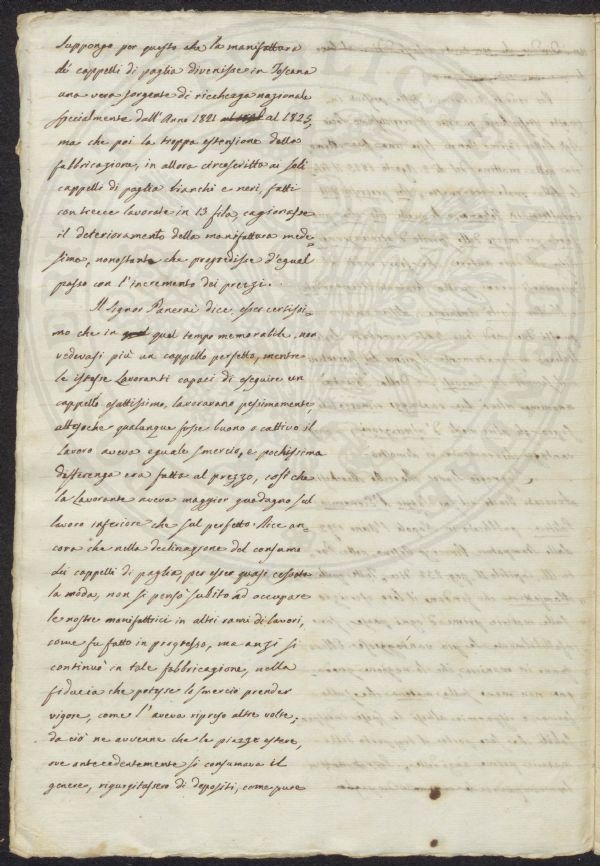 Suppongo per questo che la manifattura
dei cappelli di paglia divenisse in Toscana
una vera sorgente di ricchezza nazionale
specialmente dall'Anno 1821 al 1825,
ma che poi la troppa estensione della
fabbricazione, in allora circoscritta ai soli
cappelli di paglia bianchi e neri, fatti
con trecce lavorate in 13 fila, cagionasse
il deterioramento della manifattura mede=
sima, nonostante che progredisse d'egual
passo con l'incremento dei prezzi.
Il Signor Panerai dice, esser certissi=
mo che in qual tempo memorabile, non
vedevasi più un cappello perfetto, mentre
le istesse Lavoranti capaci di eseguire un
cappello esattissimo, lavoravano pessimamente,
attesoche qualunque fosse buono o cattivo il
lavoro aveva eguale smercio, e pochissima
differenza era fatta al prezzo, così che
la Lavorante aveva maggior guadagno sul
lavoro inferiore che sul perfetto. Dice an=
cora che nella declinazione del consumo
dei cappelli di paglia, per esser quasi cessata
la moda, non si pensò subito ad occupare
le nostre manifattrici in altri rami di lavori,
come fu fatto in progresso, ma anzi si
continuò in tale fabbricazione, nella
fiducia che potesse lo smercio prender
vigore, come l'aveva ripreso altre volte;
da ciò ne avvenne che le piazze estere,
ove antecedentemente si consumava il
genere, rigurgitassero di depositi, come pure